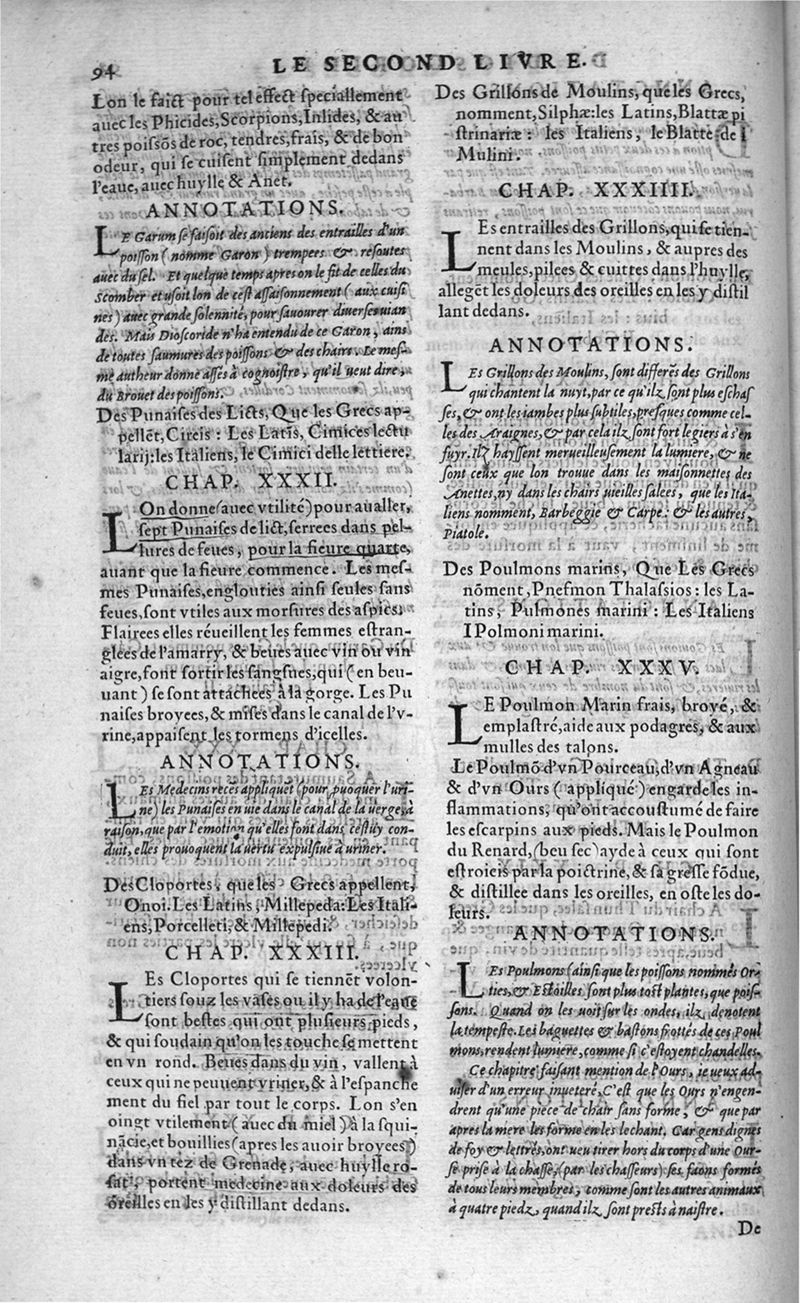 94
LE SECOND LIVRE.
Lon le faict pour tel effect speciallement
auec les Phicides, Scorpions, Inlides, & au
tres poissõs de roc, tendres, frais, & de bon
odeur, qui se cuisent simplement dedans
l'eaue, auec huylle & Anet.
ANNOTATIONS.
LE Garum se faisoit des anciens des entrailles d'un
poisson (nomme Garon) trempees & resoutes
auec du sel. Et quelque temps apres on le fit de celles du
Scomber et usoit lon de cest assaisonnement (aux cuisi
nes) auec grande solennité, pour sauourer diuerses uian
des. Mais Dioscoride n'ha entendu de ce Garon, ains
de toutes saumures des poissons & des chairs. Le mes-
me autheur donne assés à cognoistre, qu'il ueut dire,
du Brouet des poissons.
Des Punaises des Licts, Que les Grecs ap-
pellẽt, Cireis: Les Latĩs, Cimices lectu
larij: les Italiens, le Cimici delle lettiere.
CHAP. XXXII.
LOn donne (auec vtilité) pour aualler,
sept Punaises de lict, serrees dans pel-
lures de feues, pour la fieure quarte,
auant que la fieure commence. Les mes-
mes Punaises, englouties ainsi seules sans
feues, sont vtiles aux morsures des aspics.
Flairees elles réueillent les femmes estran-
glées de l'amarry, & beues auec vin ou vin
aigre, font sortir les sangsues, qui (en beu-
uant) se sont attachées à la gorge. Les Pu
naises broyees, & mises dans le canal de l'v-
rine, appaisent les tormens d'icelles.
ANNOTATIONS.
LEs Medecins recẽs appliquẽt (pour puoquer l'uri-
ne) les Punaises en uie dans le canal de la uerge, à
raison, que par l'emotion qu'elles font dans cestuy con-
duit, elles prouoquent la uertu expulsiue à uriner.
Des Cloportes, que les Grecs appellent,
Onoi. Les Latins, Millepeda: Les Itali-
ens, Porcelleti, & Millepedi.
CHAP. XXXIII.
LEs Cloportes qui se tiennẽt volon-
tiers souz les vases ou il y ha de l'eaue
sont bestes qui ont plusieurs pieds,
& qui soudain qu'on les touche se mettent
en vn rond. Beues dans du vin, vallent à
ceux qui ne peuuent vriner, & à l'espanche
ment du fiel par tout le corps. Lon s'en
oingt vtilement (auec du miel) à la squi-
nãcie, et bouillies (apres les auoir broyees)
dans vn tez de Grenade, auec huylle ro-
sat, portent medecine aux doleurs des
oreilles en les y distillant dedans.
Des Grillons de Moulins, que les Grecs,
nomment, Silphæ: les Latins, Blattæ pi
strinariæ: les Italiens, le Blatte de i
Mulini.
CHAP. XXXIIII.
LEs entrailles des Grillons, qui se tien-
nent dans les Moulins, & aupres des
meules, pilees & cuittes dans l'huylle,
allegẽt les doleurs des oreilles en les y distil
lant dedans.
ANNOTATIONS.
LEs Grillons des Moulins, sont differẽs des Grillons
qui chantent la nuyt, par ce qu'ilz sont plus eschas
ses, & ont les iambes plus subtiles, presques comme cel-
les des Araignes, & par cela ilz sont fort legiers à s'en
fuyr. Ilz hayssent merueilleusement la lumiere, & ne
sont ceux que lon trouue dans les maisonnettes des
Anettes, ny dans les chairs uieilles salees, que les Ita-
liens nomment, Barbeggie & Carpe: & les autres,
Piatole.
Des Poulmons marins, Que Les Grecs
nõment, Pnefmon Thalassios: les La-
tins, Pulmones marini: Les Italiens
I Polmoni marini.
CHAP. XXXV.
LE Poulmon Marin frais, broyé, &
emplastré, aide aux podagres, & aux
mulles des talons.
Le Poulmõ d'vn Pourceau, d'vn Agneau
& d'vn Ours (appliqué) engarde les in-
flammations, qu'ont accoustumé de faire
les escarpins aux pieds. Mais le Poulmon
du Renard, (beu sec) ayde à ceux qui sont
estroicis par la poictrine, & sa gresse fõdue,
& distillee dans les oreilles, en oste les do-
leurs.
ANNOTATIONS.
LEs Poulmons (ainsi que les poissons nommés Or-
ties, & Estoilles) sont plus tost plantes, que pois-
sons. Quand on les uoit sur les ondes, ilz denotent
la tempeste. Les baguettes & bastons frottés de ces Poul
mons, rendent lumiere, comme si c'estoyent chandelles.
Ce chapitre faisant mention de l'Ours, ie ueux ad-
uiser d'un erreur inueteré, C'est que les Ours n'engen-
drent qu'une piece de chair sans forme, & que par
apres la mere les forme en les lechant. Car gens dignes
de foy & lettrés, ont ueu tirer hors du corps d'une Our-
se prise à la chasse, (par les chasseurs) ses faons formés
de tous leurs membres, comme sont les autres animaux
à quatre piedz, quand ilz sont prests à naistre.
De